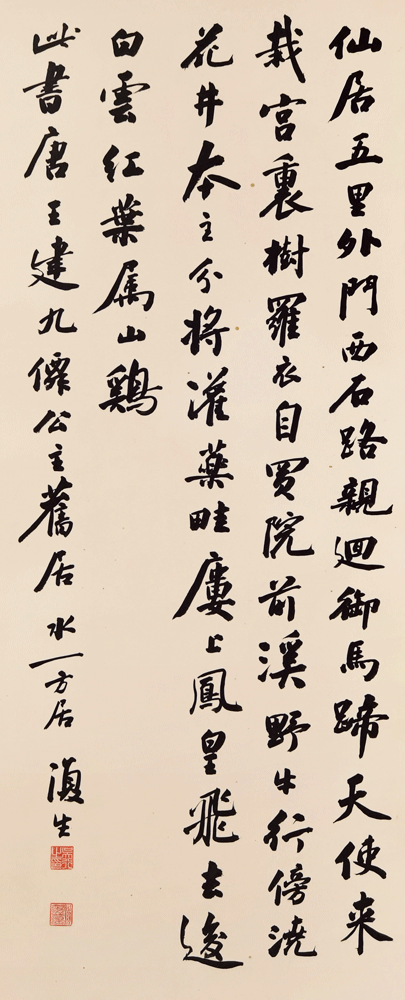 仙居五里外門西石路親迴御馬蹄天使来
栽宮裏樹羅衣自買院前溪野牛行傍澆
花井夲主分將灌藥畦廔上鳳皇飛去後
白雲紅葉属山鷄
此書唐王建九僊公主舊居 水一方居 澓生